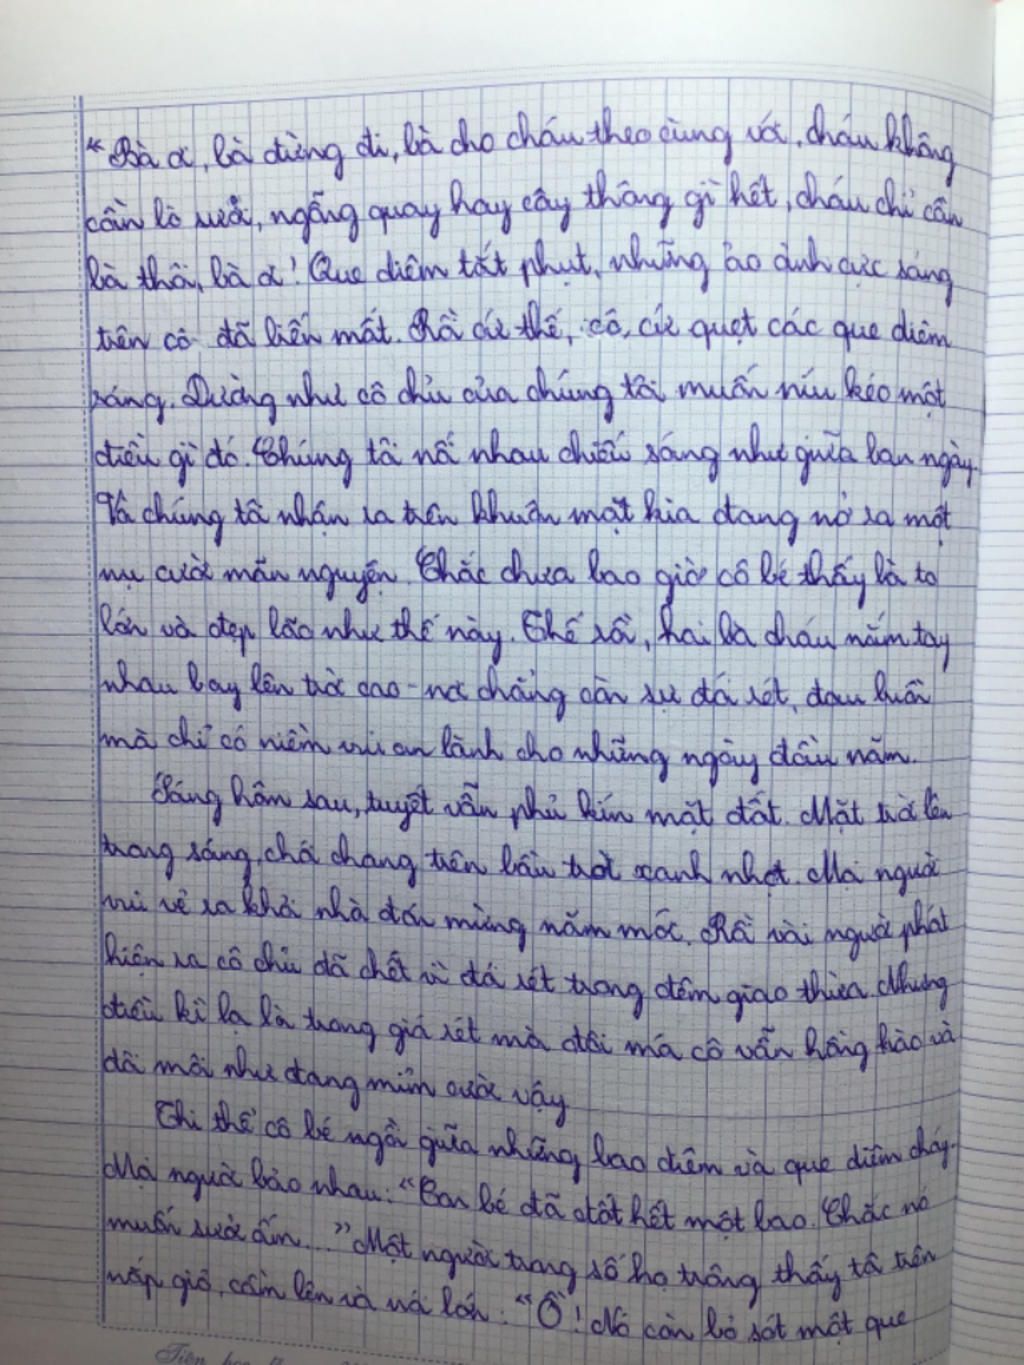 “Bà ơi, bà đừng đi, bà cho cháu theo cùng với, cháu không
cần lò sưởi, ngỗng quay hay cây thông gì hết, cháu chỉ cần
bà thôi, bà ơi! Que diêm tắt phụt, những ảo ảnh rực sáng
trên cô đã biến mất. Rồi cứ thế, cô, cứ quẹt các que diêm
sáng. Dường như cô chủ của chúng tôi muốn níu kéo một
điều gì đó. Chúng tôi nối nhau chiếu sáng như giữa ban ngày.
Và chúng tôi nhận ra trên khuôn mặt kia đang nở ra một
nụ cười mãn nguyện. Chắc chưa bao giờ cô bé thấy bà to
lớn và đẹp lão như thế này. Thế rồi, hai bà cháu nắm tay
nhau bay lên trời cao - nơi chẳng còn sự đói rét, đau buồn
mà chỉ có niềm vui an lành cho những ngày đầu năm.
Sáng hôm sau, tuyết vẫn phủ kín mặt đất. Mặt trời lên
trong sáng, chói chang trên bầu trời xanh nhợt. Mọi người
vui vẻ ra khỏi nhà đón mừng năm mốc. Rồi vài người phát
hiện ra cô chủ đã chết vì đói rét trong đêm giao thừa. Nhưng
điều kì lạ là trong giá rét mà đôi má cô vẫn hồng hào và
đôi môi như đang mỉm cười vậy
Thi thể cô bé ngồi giữa những bao diêm và que diêm cháy.
Mọi người bảo nhau: “Con bé đã đốt hết một bao. Chắc nó
muốn sưởi ấm...” Một người trong số họ trông thấy tôi trên
nắp giỏ, cầm lên và nói lớn: “Ồ! Nó còn bỏ sót một que